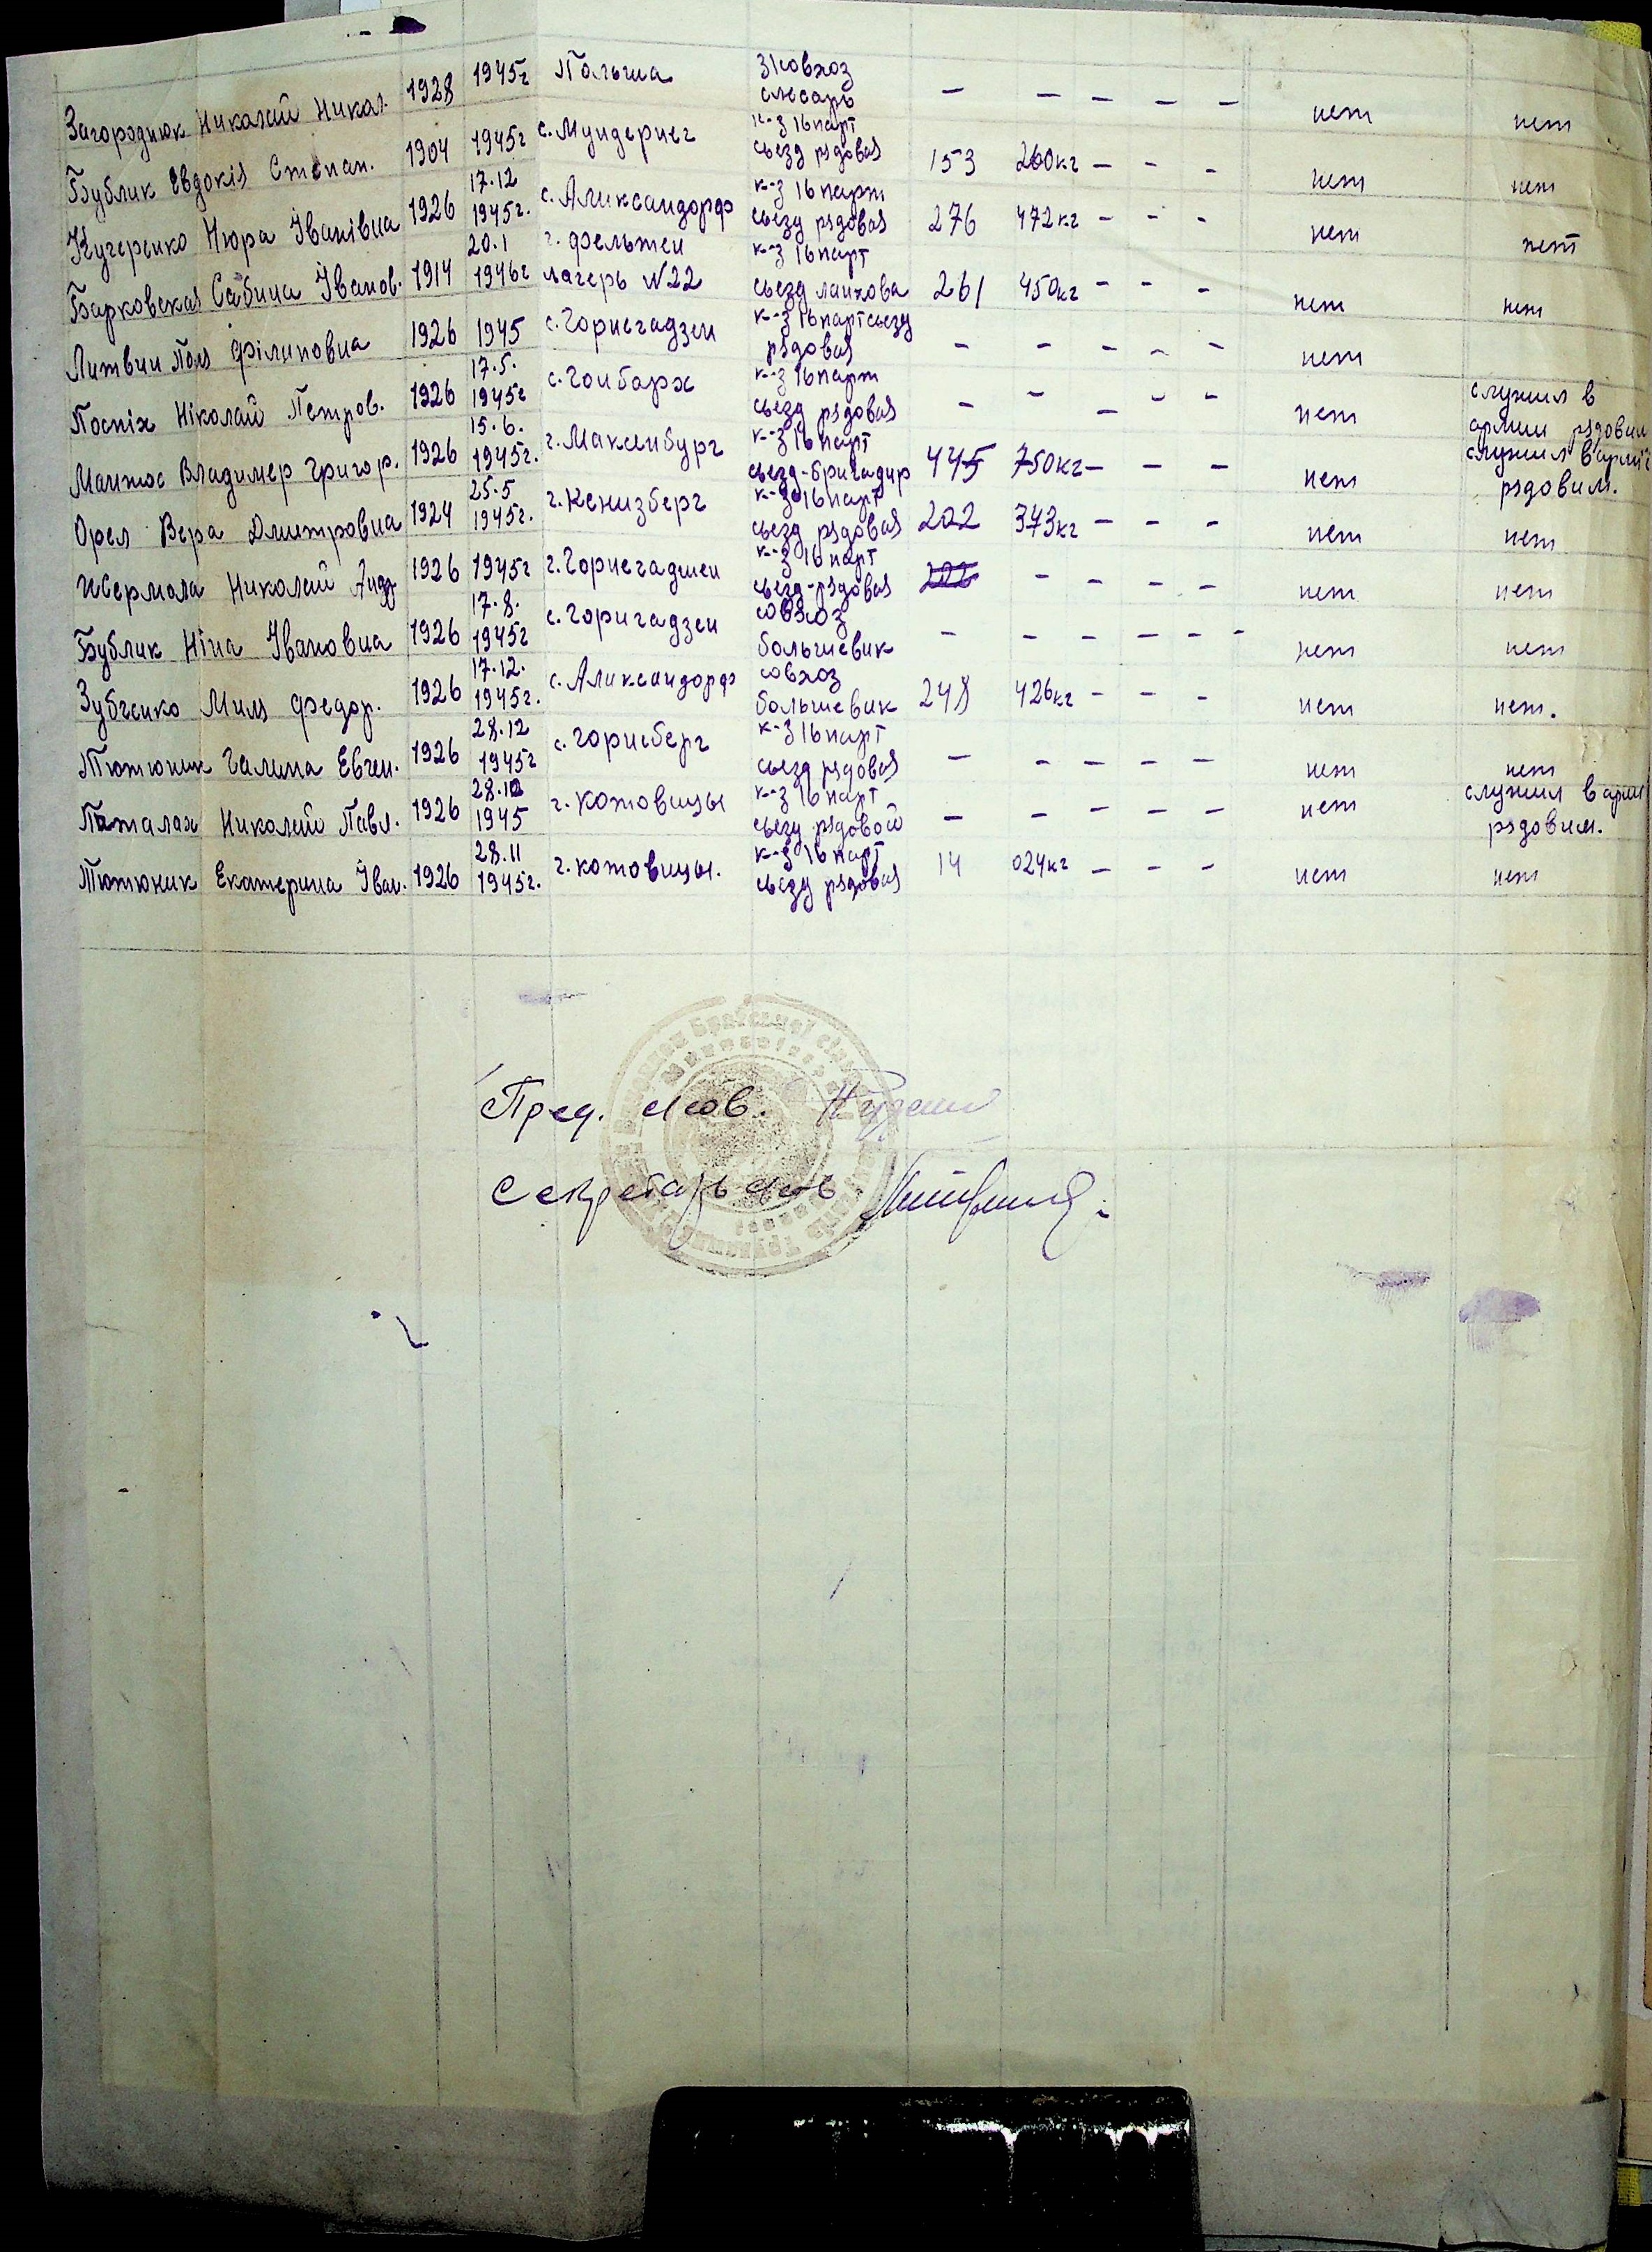 Загороднюк Николай Никол. 1928 1945г Польша з/совхоз слесарь — — — — — нет нет
Бублик Евдокія Степан. 1904 1945г с. Мундернег к-з 16 парт сьезд рядовая 153 260кг — - - нет нет
Кучеренко Нюра Іванівна 1926 17.12 1945г. с. Александорф к-з 16 парт сьезд рядовая 276 472кг - - - нет нет
Барковская Сабина Іванов. 1914 20.1 1946г г. Фельтен лагерь №22 к-з 16 парт сьезд ланкова 261 450кг - - - нет нет
Литвин Поля Філиповна 1926 1945 с. Горнегадзен к-з 16 партсьезд рядовая — - - - - нет
Поспіх Ніколай Петров. 1926 17.5. 1945г с. Гонбарх к-з 16 парт сьезд рядовая - - - - - нет служил в армии рядовим
Манжос Владимер Григор. 1926 15.6. 1945г. г. Максенбург к-з 16 парт сьезд-бригадир 445 750кг — - - нет служил в армії рядовим.
Орел Вера Дмитровна 1924 25.5 1945г. г. Кенизберг к-з 16 парт сьезд рядовая 202 343кг - - - нет нет
Жермола Николай Андр 1926 1945г г. Горнегадшен к-з 16 парт сьезд-рядовая 202 - - - - нет нет
Бублик Ніна Івановна 1926 17.8. 1945г с. Горнгадзен совхоз большевик - - - - - - нет нет
Зубченко Миля Федор. 1926 17.12. 1945г. с. Александорф совхоз большевик 248 426кг - - - нет нет.
Тютюник Галина Евген. 1926 28.12 1945г с. Горнсберг к-з 16 парт сьезд рядовая — - - - - нет нет
Паталах Николай Павл. 1926 28.12 1945 г. Котовицы к-з 16 парт сьезд рядовой — - - - - нет служил в арми рядовим.
Тютюник Екатерина Іван. 1926 28.11 1945г. г. Котовицы. к-з 16 парт сьезд рядовая 14 024кг - - - нет нет
Пред. с/сов.
Секретарь с/сов